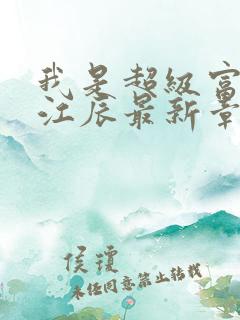 我是超级富
江辰最新章
侯琼
未经同意禁止转载